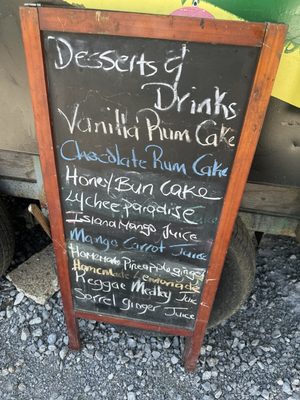 Desserts &
Drinks
Vanilla Rum Cake
Chocolate Rum Cake
Honey Bun Cake
Lychee paradise
Island Mango Juice
Mango Carrot Juice
Homemade Pineapple ginger
Homemade Lemonade
Reggae Medley Juice
Sorrel ginger Juice